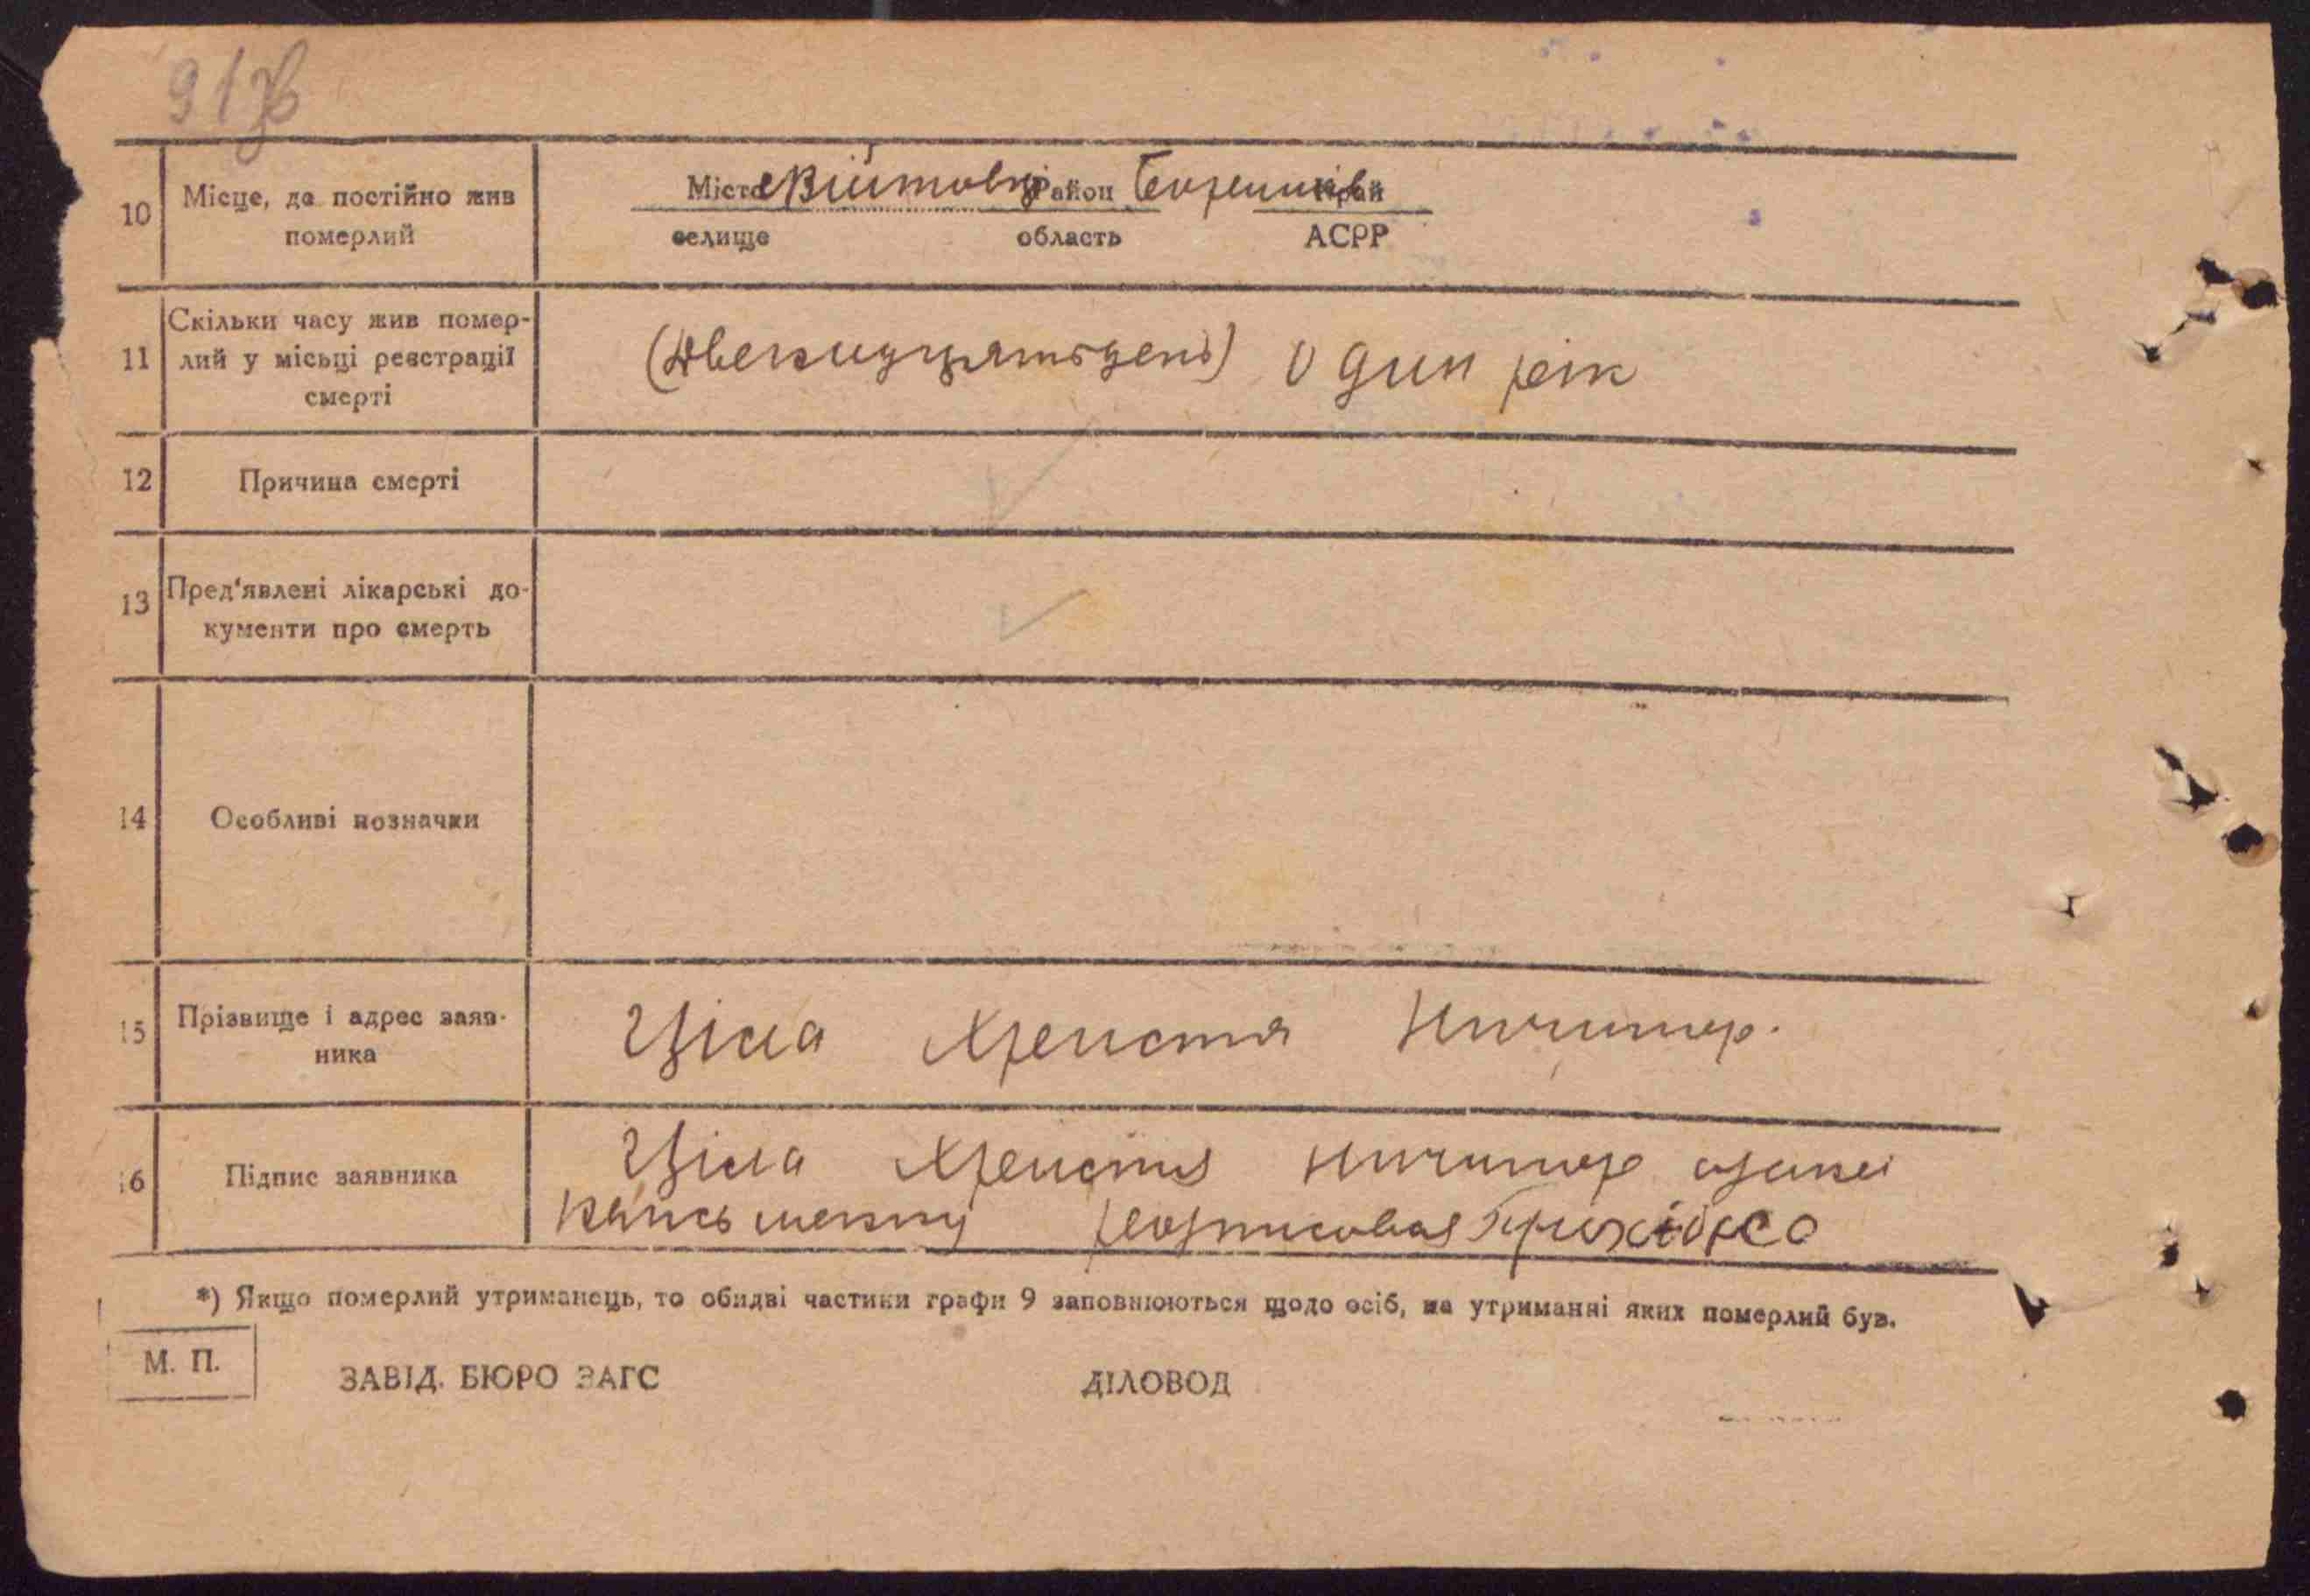 91
10 Місце, де постійно жив померлий
Місто Війтовці район край
селище область АСРР
11 Скільки часу жив помер-
лий у місьці реєстрації
смерті
Один рік
12 Причина смерті
13 Пред'явлені лікарські до-
кументи про смерть
14 Особливі позначки
15 Прізвище і адрес заяв-
ника
Христя Ничипор.
16 Підпис заявника
Христя Ничипор
*) Якщо померлий утриманець, то обидві частини графи 9 заповнюються щодо осіб, на утриманні яких померлий був.
М. П.
ЗАВІД. БЮРО ЗАГС ДІЛОВОД